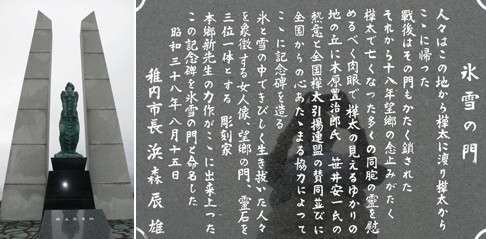 氷雪の門
人々はこの地から樺太に渡り樺太から
ここに帰った
戦後はその門もかたく鎖された
それから十八年望郷の念止みがたく
樺太で亡くなった多くの同胞の霊を慰
めるべく肉眼で樺太の見えるゆかりの
地の丘に木原豊治郎氏 笹井安一氏の
熱意と全国樺太引揚連盟の賛同並びに
全国から心あたゝまる協力によって
ここに記念碑を造る
氷と雪の中できびしく生き抜いた人々
を象徴する女人像、望郷の門、霊石を
三位一体とする 彫刻家
本郷新先生の力作がここに出来上った
この記念碑を氷雪の門と命名した
昭和三十八年八月十五日
稚内市長 浜森辰雄